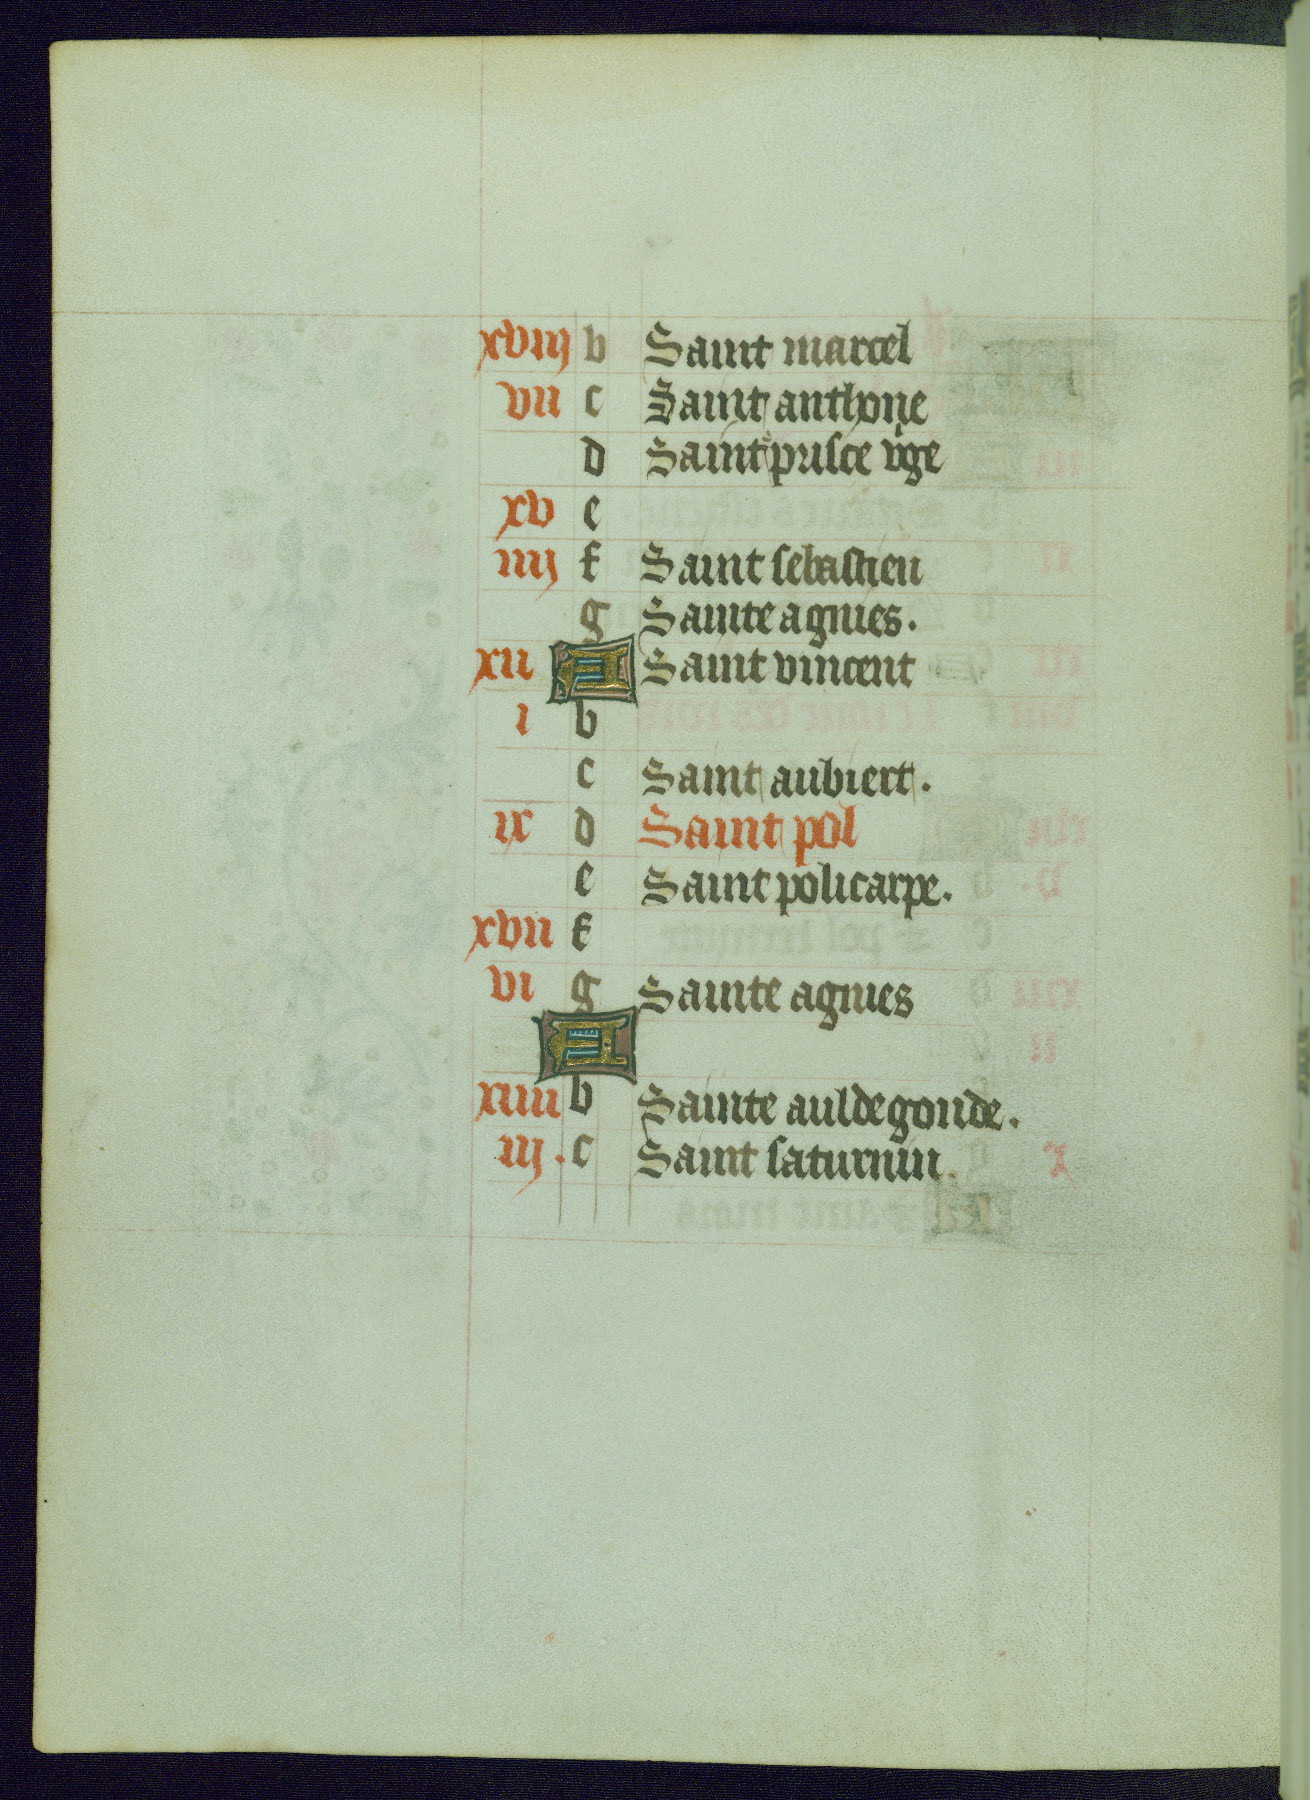 xviij b Saint marcel
vii c Saint anthone
d Saint prisce v̄ge
xv e
iiij f Saint sebastien
g Sainte agnies.
xii A Saint vincent
i b
c Saint aubiert.
ix d Saint pol
e Saint policarpe.
xvii f
vi g Sainte agnies
A
xiiii b Sainte auldegonde.
iij. c Saint saturnin.